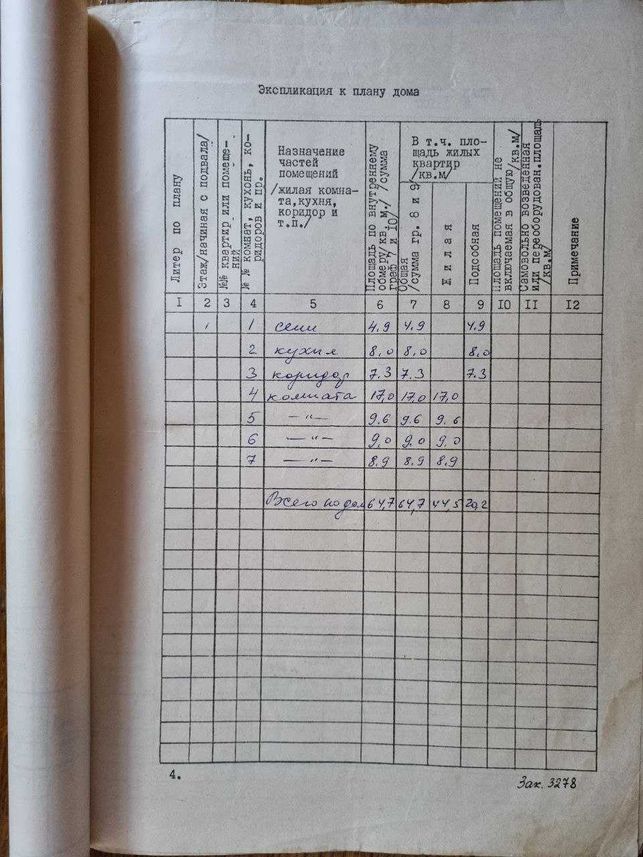 Экспликация к плану дома
Литер по плану
Этаж/начиная с подвала/
№№ квартир или помеще-
ний
№ № комнат, кухонь, ко-
ридоров и пр.
Назначение
частей
помещений
/жилая комна-
та,кухня,
коридор и
т.п./
Площадь по внутреннему
обмеру/кв.м./ /сумма
граф 7 и 10/
В т.ч. пло-
щадь жилых
квартир
/кв.м/
Общая
/сумма гр. 8 и 9/
Жилая
Подсобная
Площадь помещений не
включаемая в общую/кв.м/
Самовольно возведенная
или переоборудован.площадь
/кв.м/
Примечание
I 2 3 4 5 6 7 8 9 IO II I2
1 1 сени 4.9 4.9 4.9
2 кухня 8,0 8,0 8,0
3 коридор 7.3 7.3 7.3
4 комната 17,0 17,0 17,0
5 —"— 9.6 9.6 9.6
6 —"— 9.0 9.0 9.0
7 —"— 8.9 8.9 8.9
Всего по дом 64,7 64,7 44,5 20,2
4.
Зак. 3278